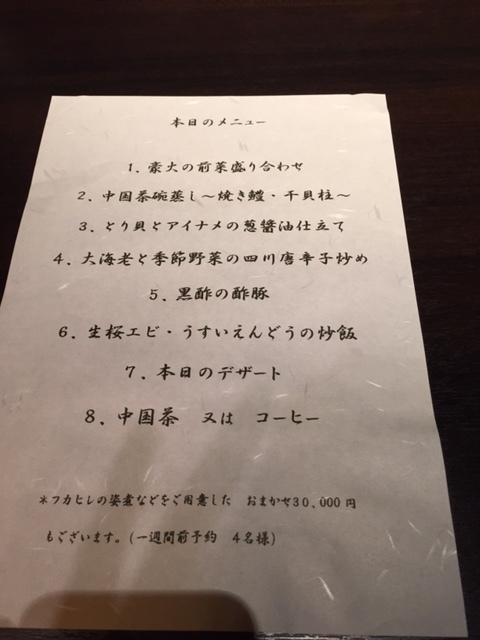 本日のメニュー
1．豪大の前菜盛り合わせ
2．中国茶碗蒸し～焼き鱧・干貝柱～
3．とり貝とアイナメの葱醬油仕立て
4．大海老と季節野菜の四川唐辛子炒め
5．黒酢の酢豚
6．生桜エビ・うすいえんどうの炒飯
7．本日のデザート
8．中国茶　又は　コーヒー
＊フカヒレの姿煮などをご用意した　おまかせ30,000円
もございます。(一週間前予約　4名様)